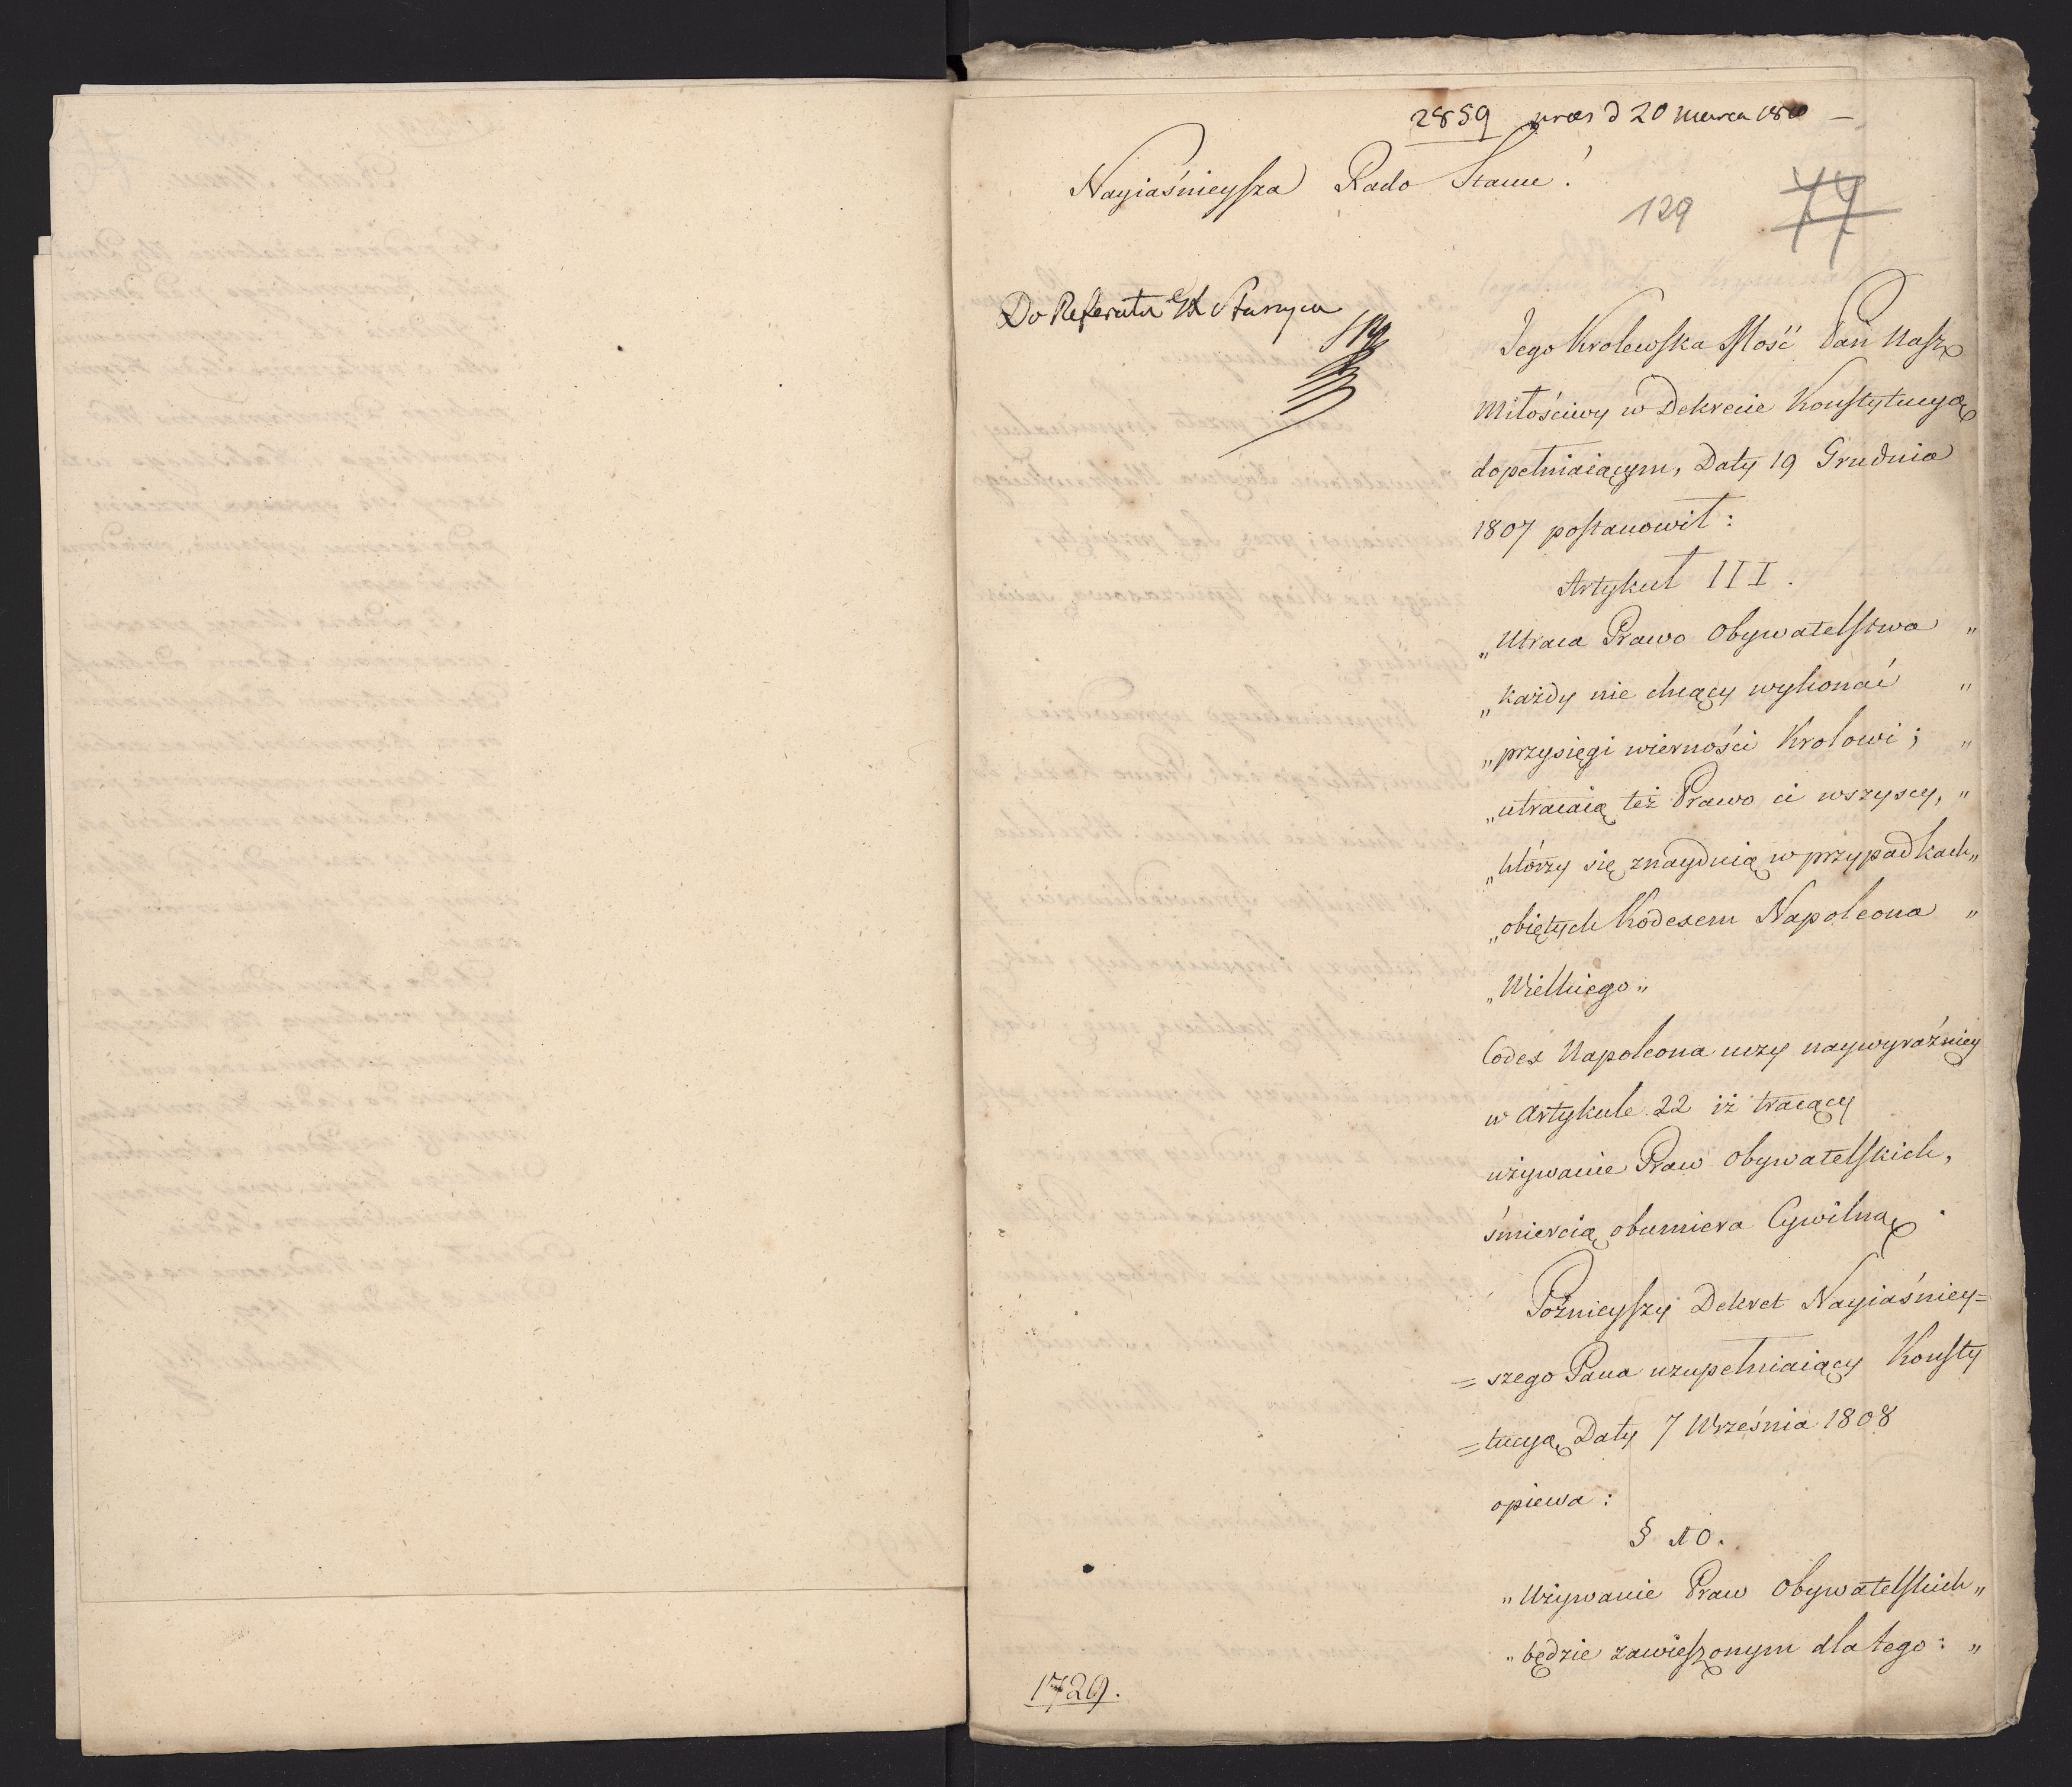 2859 praes d 20 Marca 1810
Nayiaśnieysza Rado Stanu!
129 77
Do Referatu
Jego Krolewska Mość Pan Nasz
Miłościwy w Dekrecie Konstytucyą
dopełniaiącym, Daty 19 Grudnia
1807 postanowił:
Artykuł III.
„Utraca Prawo Obywatelstwa „
„każdy nie chcący wykonać „
„przysięgi wierności Krolowi; „
„utracaią też Prawo ci wszyscy, „
„którzy się znayduią w przypadkach„
„obiętych Kodexem Napoleona „
„Wielkiego„
Codex Napoleona uczy naywyraźniey
w Artykule 22 iż tracący
używanie Praw Obywatelskich,
śmiercią obumiera Cywilną.
Poźnieyszy Dekret Nayiaśniey=
=szego Pana uzupełniaiący Konsty
=tucyą Daty 7 Września 1808
opiewa:
§ 10.
„Używanie Praw Obywatelskich„
„będzie zawieszonym dla tego: „
1729.